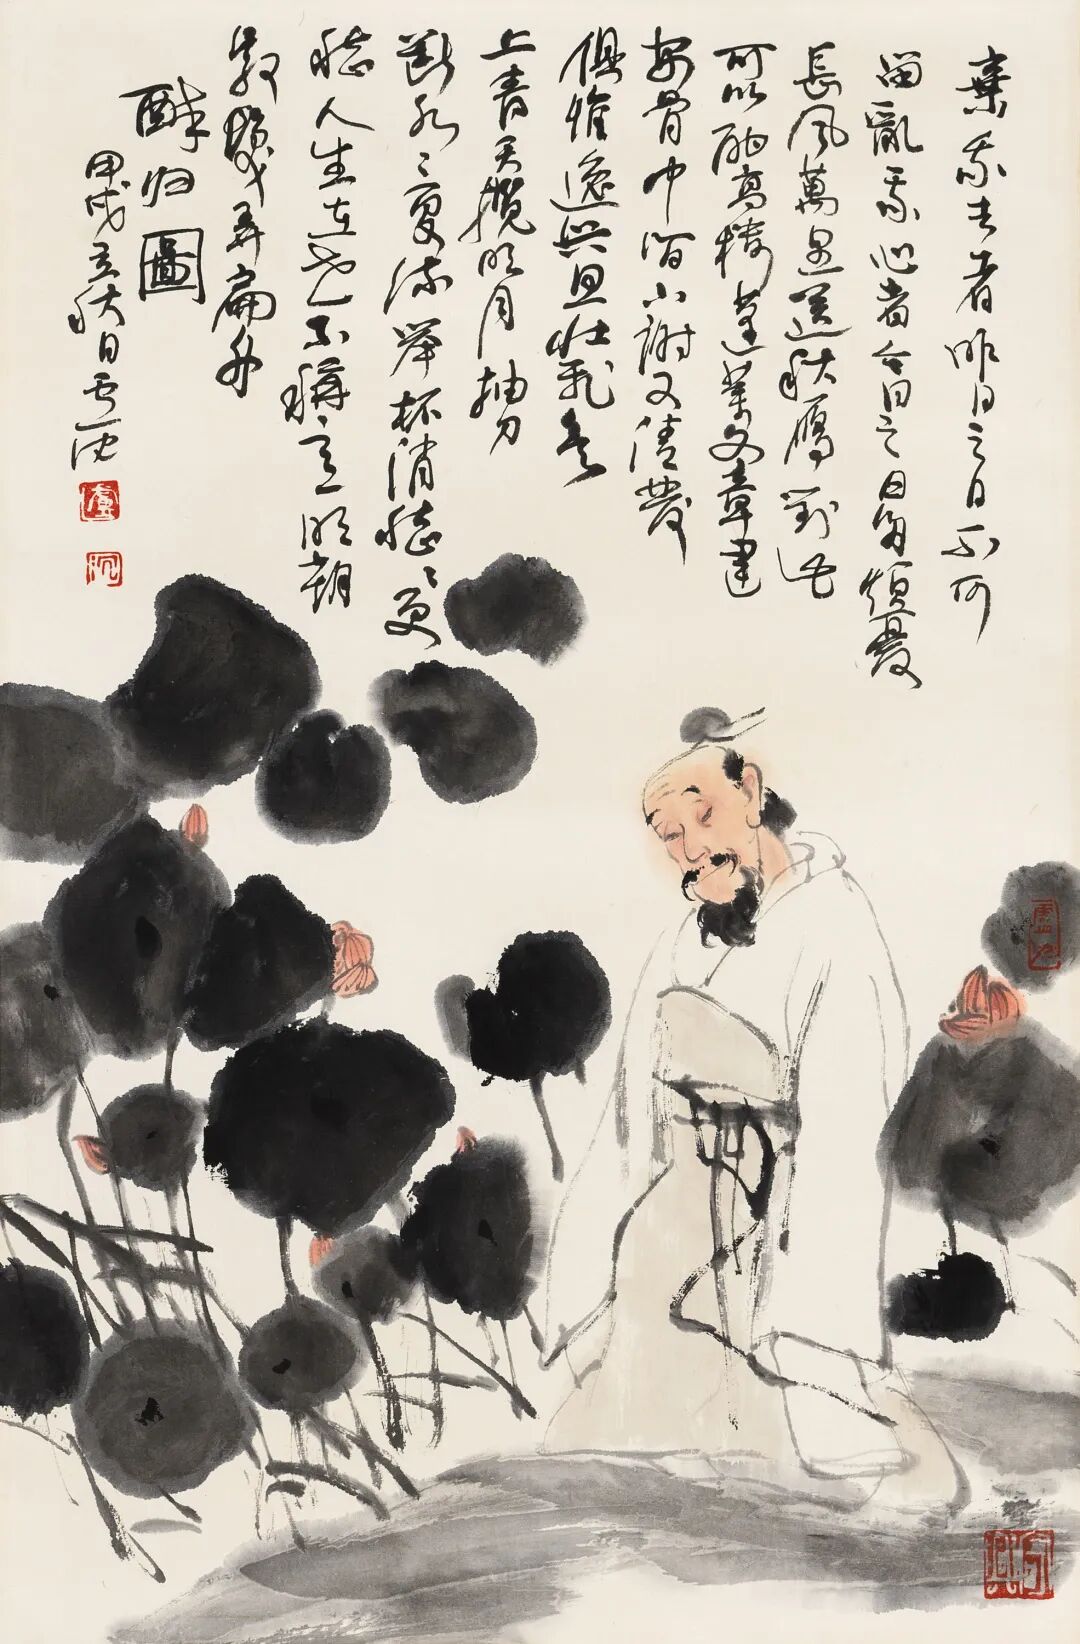 棄我去者昨日之日不可
留亂我心者今日之日多煩憂
長風萬里送秋雁對此
可以酣高樓蓬萊文章建
安骨中間小謝又清發
俱懷逸興且壯飛欲
上青天攬明月抽刀
斷水〻更流舉杯消愁〻更
愁人生在世不稱意明朝
散髮弄扁舟
醉归圖
甲戌立秋日盧沉
盧
沉